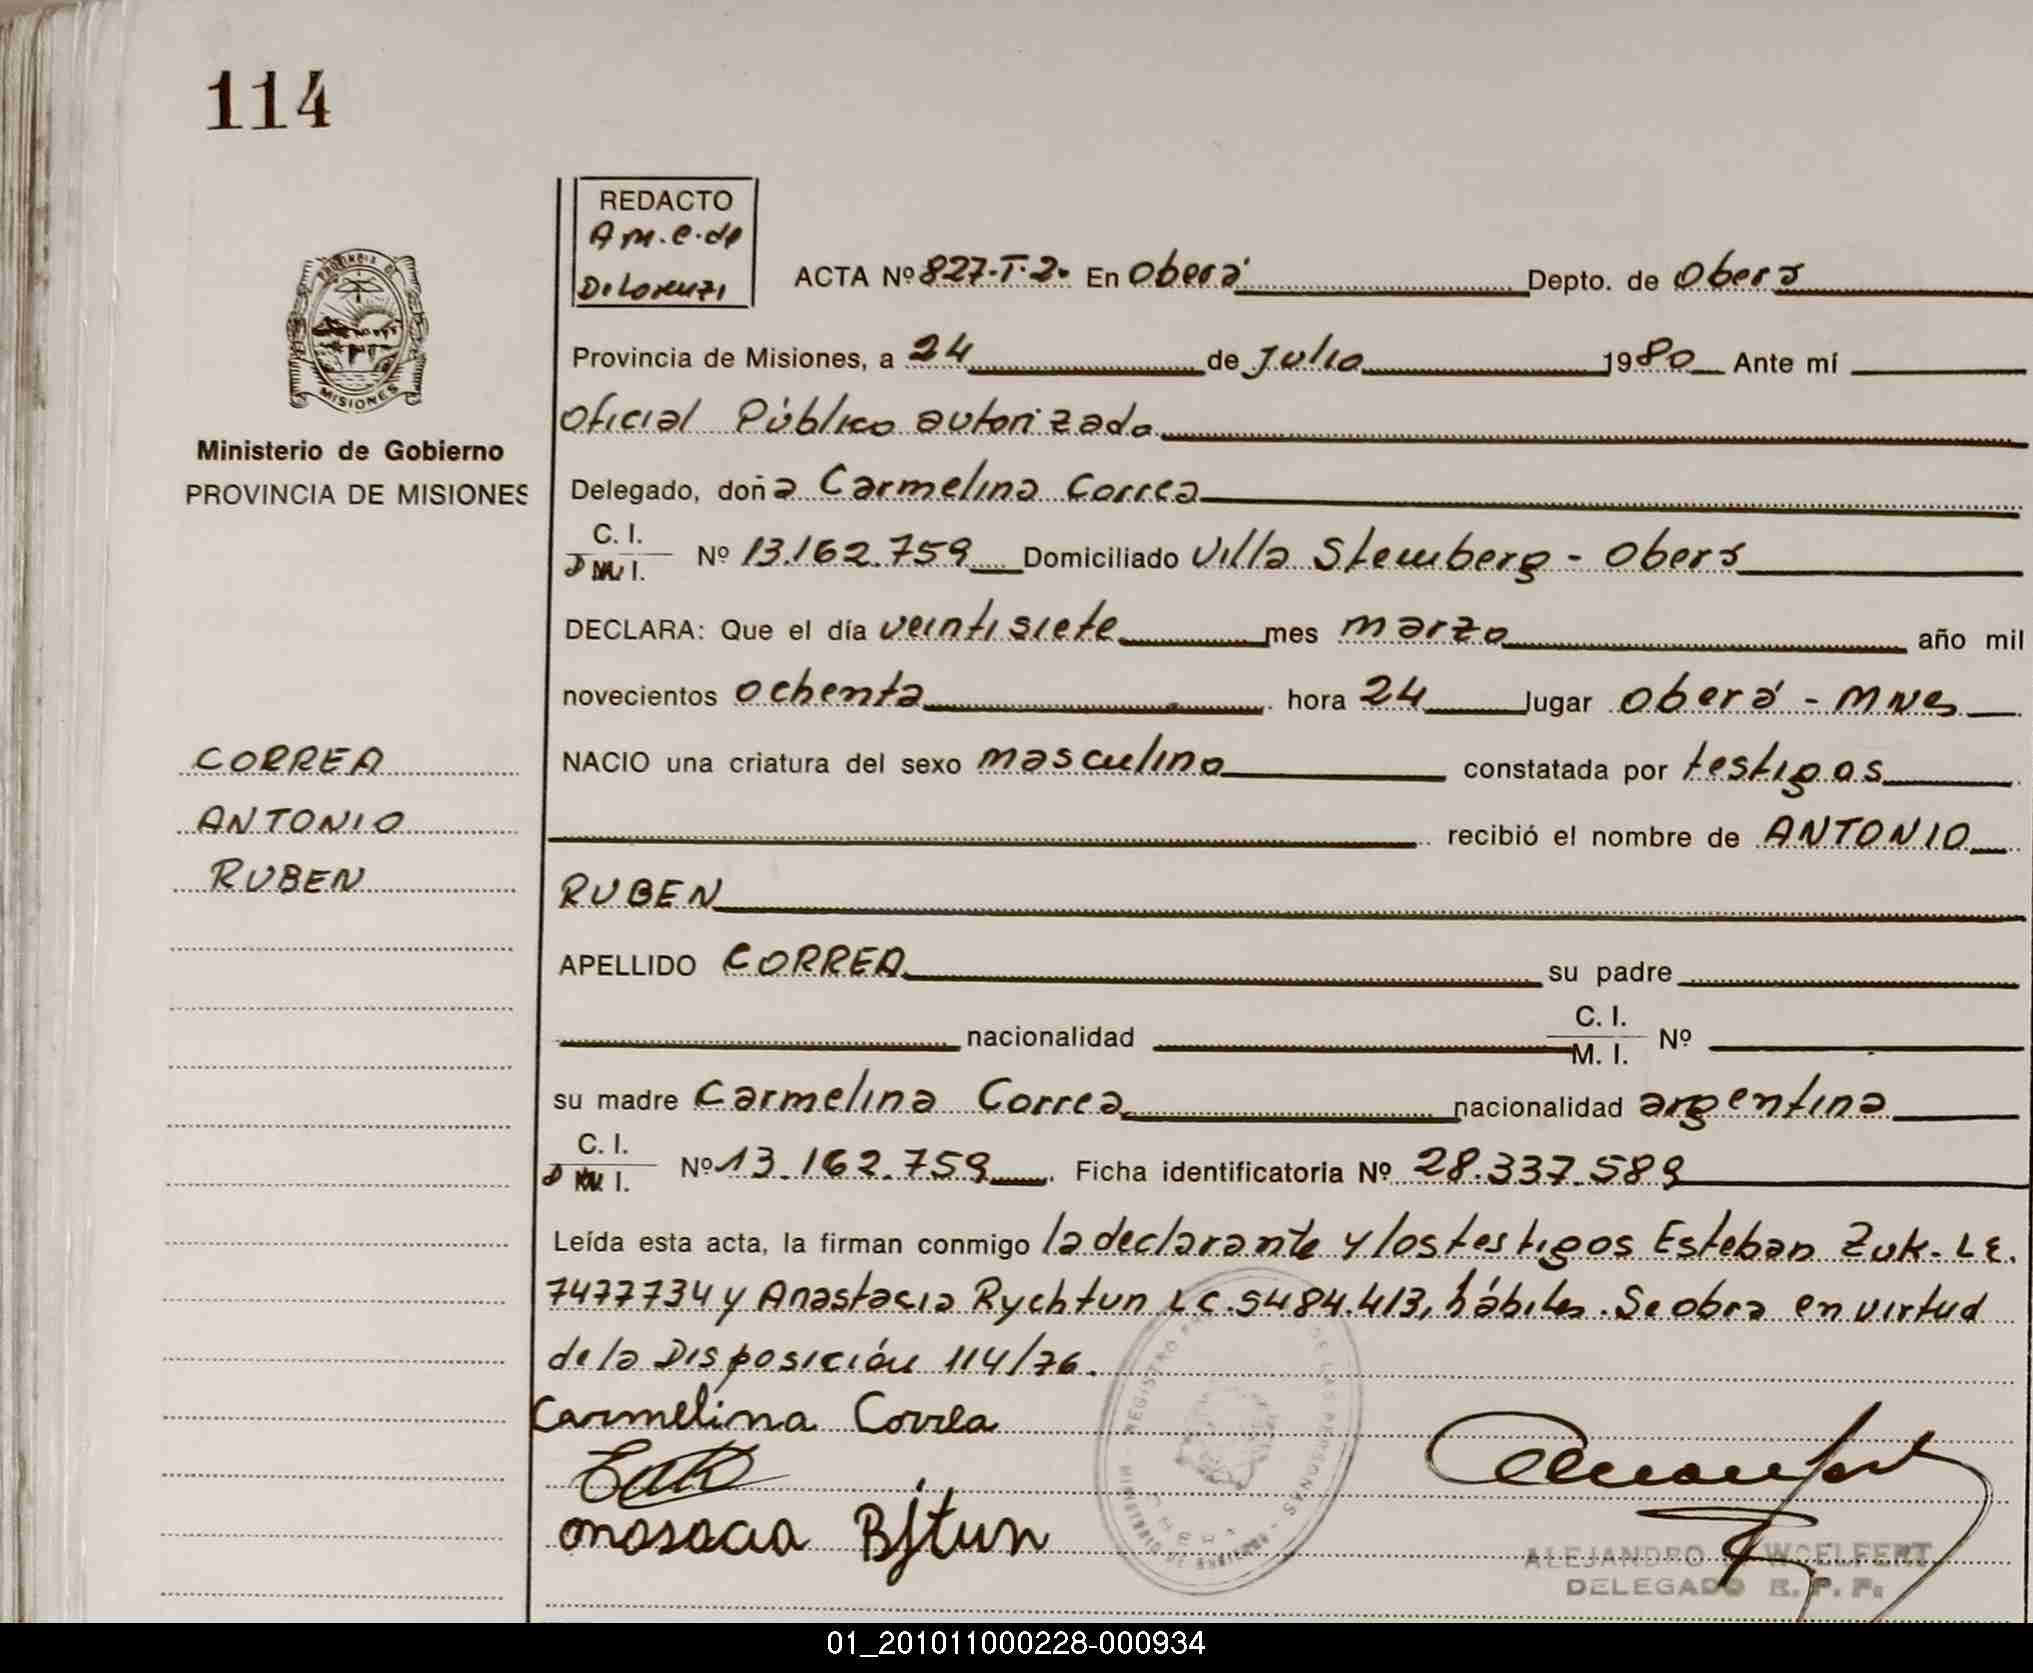 114
REDACTO
A m. e. de
Delorenzi
ACTA Nº 827-T.2. En Oberá Depto. de Oberá
Provincia de Misiones, a 24 de Julio 1980 Ante mí
Oficial Público autorizado
Ministerio de Gobierno
PROVINCIA DE MISIONES
Delegado, doña Carmelina Correa
C. I.
D N I. Nº 13.162.759 Domiciliado Villa Stemberg - Oberá
DECLARA: Que el día veintisiete mes marzo año mil
novecientos ochenta hora 24 lugar Oberá - Mnes
CORREA
ANTONIO
RUBEN
NACIO una criatura del sexo masculino constatada por testigos
recibió el nombre de ANTONIO
RUBEN
APELLIDO CORREA su padre
nacionalidad C. I. M. I. Nº
su madre Carmelina Correa nacionalidad argentina
C. I.
D N I. Nº 13.162.759 Ficha identificatoria Nº 28.337.589
Leída esta acta, la firman conmigo la declarante y los testigos Esteban Zuk. L E.
7477734 y Anastacia Rychtun L C. 5484.413, hábiles. Se obra en virtud
de la Disposición 114/76.
Carmelina Correa
REGISTRO DE LAS PERSONAS - MINISTERIO DE GOBIERNO
OBERA
ALEJANDRO WOELFERT
DELEGADO R. P. P.
01_201011000228-000934